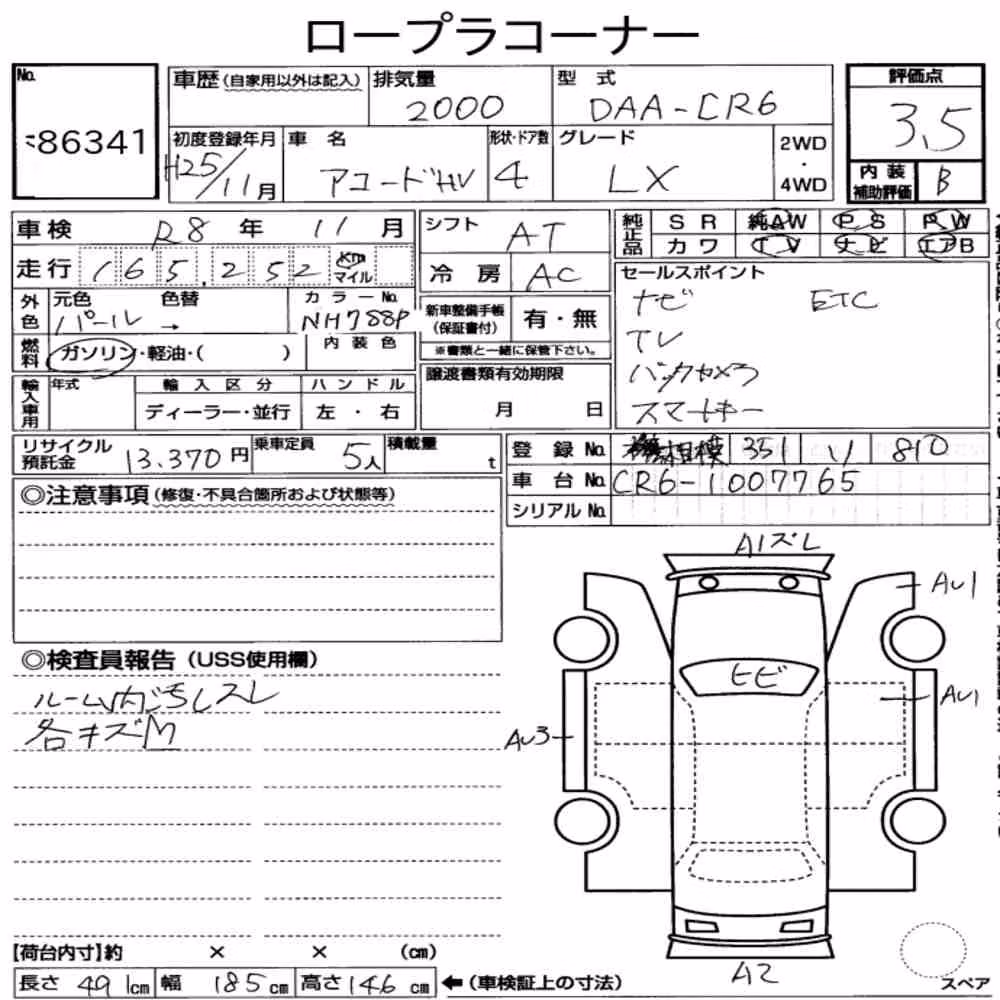 ロープラコーナー
No.
86341
車歴(自家用以外は記入)
排気量
2000
型 式
DAA-CR6
評価点
3.5
初度登録年月
H25/11月
車 名
アコードHV
形状・ドア数
4
グレード
LX
2WD
・
4WD
内 装
補助評価
B
車検 R8 年 11 月
シフト AT
純正品
S R 純AW P S P W
カ ワ T V ナ ビ エアB
走行 165,252 Km
マイル
冷 房 AC
セールスポイント
ナビ ETC
TV
バックカメラ
スマートキー
外色
元色 色替
パール →
カラーNo.
NH788P
新車整備手帳
(保証書付)
有・無
※書類と一緒に保管下さい。
燃料
ガソリン・軽油・( )
内 装 色
譲渡書類有効期限
月 日
輸入車用
年式
輸 入 区 分
ディーラー・並行
ハ ン ド ル
左 ・ 右
リサイクル
預託金
13.370 円
乗車定員
5人
積載量
t
登 録 No. 相模 351 リ 810
車 台 No. CR6-1007765
シリアル No.
◎注意事項(修復・不具合箇所および状態等)
◎検査員報告(USS使用欄)
ルーム内ごちしスレ
各キズM
A1ズレ
AU1
ヒビ
AU1
AU3
A2
スペア
【荷台内寸】約 × × (cm)
長さ 491cm 幅 185cm 高さ 146cm ←(車検証上の寸法)